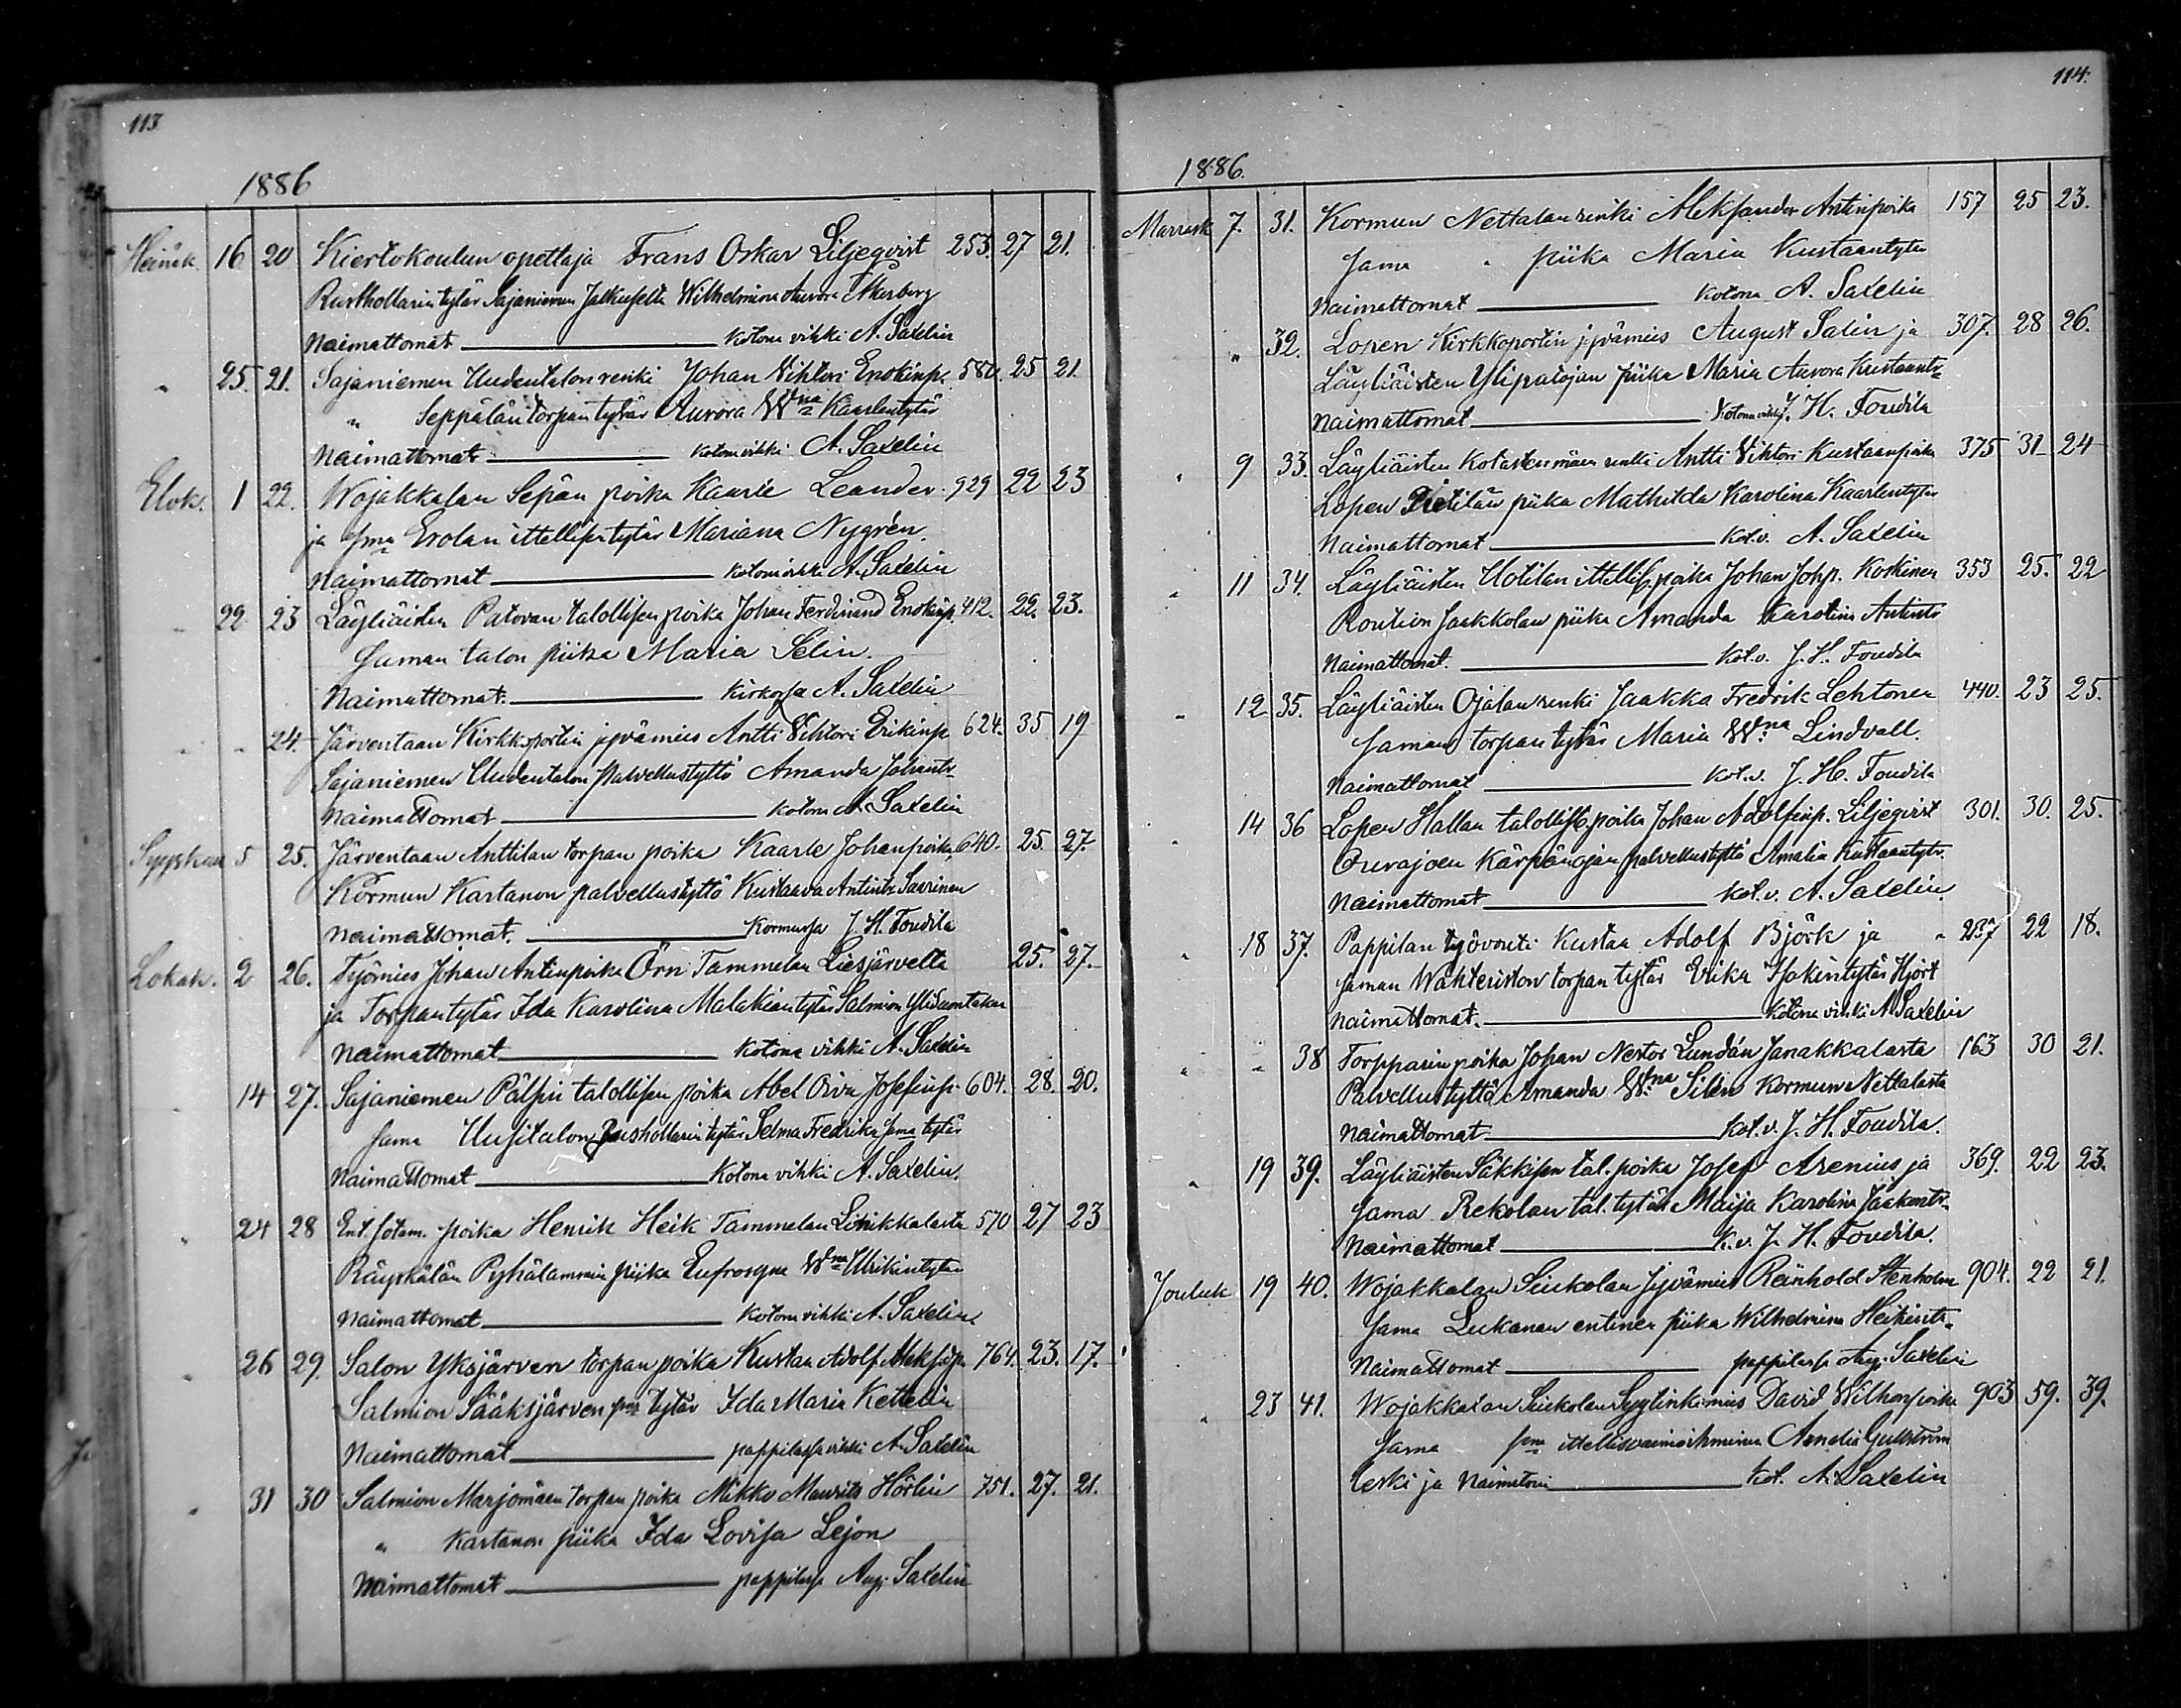 113
1886
Heinäk. 16 20 Kiertokoulun opettaja Frans Oskar Liljeqvist 253. 27 21.
Rusthollarin tytär Sajaniemen Wilhelmina Aurora Åkerberg
Naimattomat kotona vihki A. Saxelin
" 25. 21. Sajaniemen Uudentalon renki Johan Vihtori Enokinp. 580. 25 21.
" Seppälän torpan tytär Aurora W:na Kaarlentytär
Naimattomat kotona vihki A. Saxelin
Elok. 1 22. Wojakkalan Sepän poika Kaarle Leander 929 22 23
ja sma Erolan ittellisen tytär Mariana Nygrén.
Naimattomat kotona vihki A. Saxelin
" 22 23 Läyliäisten Patovan talollisen poika Johan Ferdinand Enokinp. 412. 22. 23.
Saman talon piika Maria Selin.
Naimattomat. kirkossa A. Saxelin
" " 24. Järventaan Kirkkoportin jyvämies Antti Vihtori Erikinp. 624. 35 19
Sajaniemen Uudentalon palvellustyttö Amanda Johantr.
Naimattomat kotona A. Saxelin
Syyskuu 5 25. Järventaan Anttilan torpan poika Kaarle Johanpoika 640. 25. 27.
Kormun Kartanon palvellustyttö Kustaava Antintr. Saarinen
Naimattomat. Kormussa J. H. Foudila
Lokak. 2 26. Työmies Johan Antinpoika Örn Tammelan Liesjärveltä 25. 27.
ja Torpantytär Ida Karolina Malakiantytär Salmion
Naimattomat kotona vihki A. Saxelin
" 14 27. Sajaniemen Pälsin talollisen poika Abel Oiva Josefinp. 604. 28. 20.
Sama Uusitalon Rushollarin tytär Selma Fredrika sma tytär
Naimattomat Kotona vihki A. Saxelin.
" 24 28 Ent. sotam. poika Henrik Heik Tammelan Liesikkalasta 570 27 23
Räyskälän Pyhälammin piika Eufrosyne W:na Ulrikintytär
Naimattomat kotona vihki A. Saxelin
" 26 29. Salon Yksjärven torpan poika Kustaa Adolf 764. 23. 17.
Salmion Sääksjärven tytär Ida Maria Kettelin
Naimattomat pappilassa vihki A. Saxelin
" 31 30 Salmion Marjomäen torpan poika Mikko Maurits Hörlin 751. 27. 21.
" Kartanon piika Ida Lovisa Lejon
Naimattomat pappilassa Aug. Saxelin
114.
1886.
Marrask 7. 31. Kormun Nettalan renki Aleksander Antinpoika 157 25 23.
Sama " piika Maria Kustaantytär
Naimattomat kotona A. Saxelin
" 32. Lopen Kirkkoportin jyvämies August Salin ja 307. 28 26.
Läyliäisten Ylipatojan piika Maria Aurora Kustaantr.
Naimattomat Kotona vihki J. H. Foudila
" 9 33. Läyliäisten Kotastenmäen renki Antti Vihtori Kustaanpoika 375 31 24
Lopen Pietilän piika Mathilda Karolina Kaarlentytär
Naimattomat kot. v. A. Saxelin
" 11 34. Läyliäisten Uotilan ittellis. poika Johan Johp. Koskinen 353 25. 22
Roution Jaakkolan piika Amanda Karolina Antintr
Naimattomat. kot. v. J. H. Foudila
" 12 35. Läyliäisten Ojalan renki Jaakka Fredrik Lehtonen 440. 23 25.
Saman torpan tytär Maria W:na Lindvall.
Naimattomat kot. v. J. H. Foudila
" 14 36 Lopen Hallan talollis. poika Johan Adolfinp. Liljeqvist 301. 30. 25.
Ourajoen Kärpänojan palvellustyttö Amalia Kustaantytr.
Naimattomat kot. v. A. Saxelin.
" 18 37. Pappilan työvouti Kustaa Adolf Björk ja 22 18.
saman Wahteriston torpan tytär Erika Isakintytär Hjört
Naimattomat. Kotona vihki A. Saxelin
" " 38 Torpparin poika Johan Nestor Lundán Janakkalasta 163 30 21.
Palvellustyttö Amanda W:na Silen Kormun Nettalasta
Naimattomat kot. v. J. H. Foudila.
" 19 39. Läyliäisten Säkkisen tal. poika Josef Arenius ja 369. 22 23.
Sama Rekolan tal. tytär Maija Karolina Jaakontr.
Naimattomat K. v. J. H. Foudila.
Jouluk 19 40. Wojakkalan Siukolan jyvämies Reinhold Stenholm 904. 22 21.
Sama Lukanan entinen piika Wilhelmina Heikintr.
Naimattomat pappilassa Aug. Saxelin
" 23 41. Wojakkalan Siukolan Syytinkimies David Wilhonpoika 903 59. 39.
Sama sma ittellisvaimoihminen Amalia Gullström
leski ja Naimatoin kot. A. Saxelin